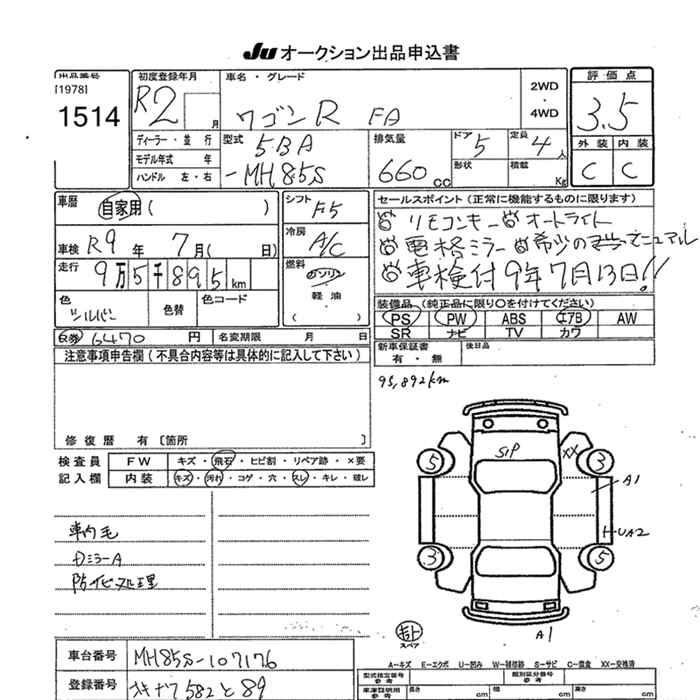 Ju オークション出品申込書
出品番号 初度登録年月 車名・グレード 2WD・4WD 評価点
[1978]
1514 R2 月 ワゴンR FA 3.5
ディーラー・並行 型式 排気量 ドア 定員 外装 内装
モデル年式 年 5BA 5 4人
ハンドル 左・右 -MH85S 660cc 形状 積載 Kg C C
車歴 自家用( ) シフト F5 セールスポイント(正常に機能するものに限ります)
冷房 A/C リモコンキー オートライト
車検 R9年 7月( 日) 電格ミラー 希少の マニュアル
走行 9万5千895km 燃料 ガソリン・軽油( ) 車検付9年7月13日!!
色 シルバー 色替 色コード 装備品(純正品に限り○を付けてください)
PS PW ABS エアB AW
SR ナビ TV カワ
R券 6470円 名変期限 月 日 新車保証書 有・無 後日品
注意事項申告欄(不具合内容等は具体的に記入して下さい)
95,892km
修復歴 有[箇所 ]
検査員 FW キズ・飛石・ヒビ割・リペア跡・×要
記入欄 内装 キズ・汚れ・コゲ・穴・スレ・キレ・破レ
S1P XX
5 3
A1
UA2
3 5
車内毛
ミラーA
防イヒ処理
スペア
A1
車台番号 MH85S-107176
A―キズ E―エクボ U―凹み W―補修跡 S―サビ C―腐食 XX―交換済
登録番号 582 と 89
型式指定番号 参考 類別区分番号 参考
車庫証明用 参考 長さ cm 幅 cm 高さ cm